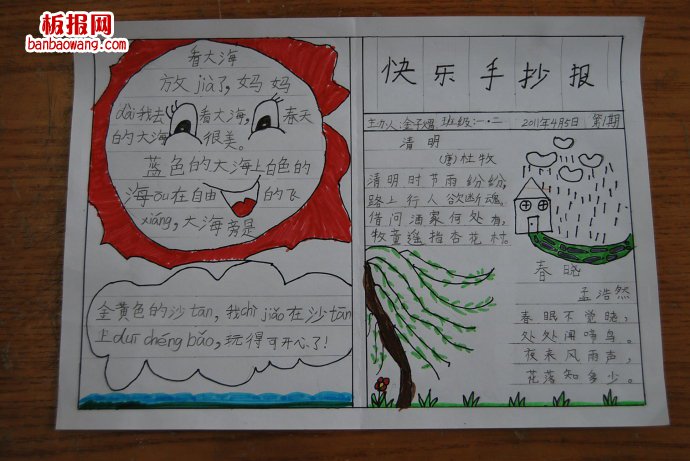 板报网
banbaowang.com
看大海
放jià了，妈妈
dài我去看大海，春天
的大海很美。
蓝色的大海上白色的
海ōu在自由的飞
xiáng，大海旁是
金黄色的沙tān，我chì jiǎo在沙tān
上duī chéng bǎo，玩得可开心了！
快乐手抄报
主办人：金子熠 班级：一·二 2011年4月5日 第1期
清明
(唐)杜牧
清明时节雨纷纷，
路上行人欲断魂。
借问酒家何处有，
牧童遥指杏花村。
春晓
孟浩然
春眠不觉晓，
处处闻啼鸟。
夜来风雨声，
花落知多少。